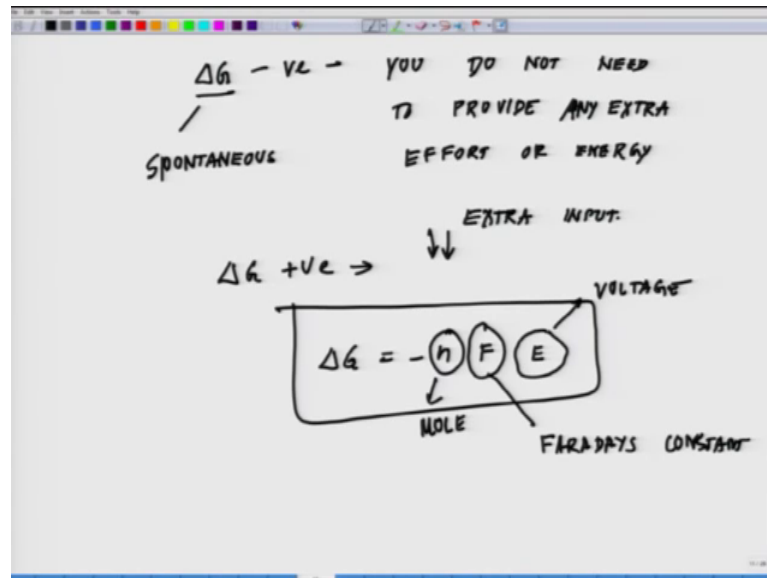 ΔG - ve - YOU DO NOT NEED
TO PROVIDE ANY EXTRA
SPONTANEOUS EFFORT OR ENERGY
EXTRA INPUT.
ΔG +ve →
VOLTAGE
ΔG = - n F E
MOLE
FARADAYS CONSTANT